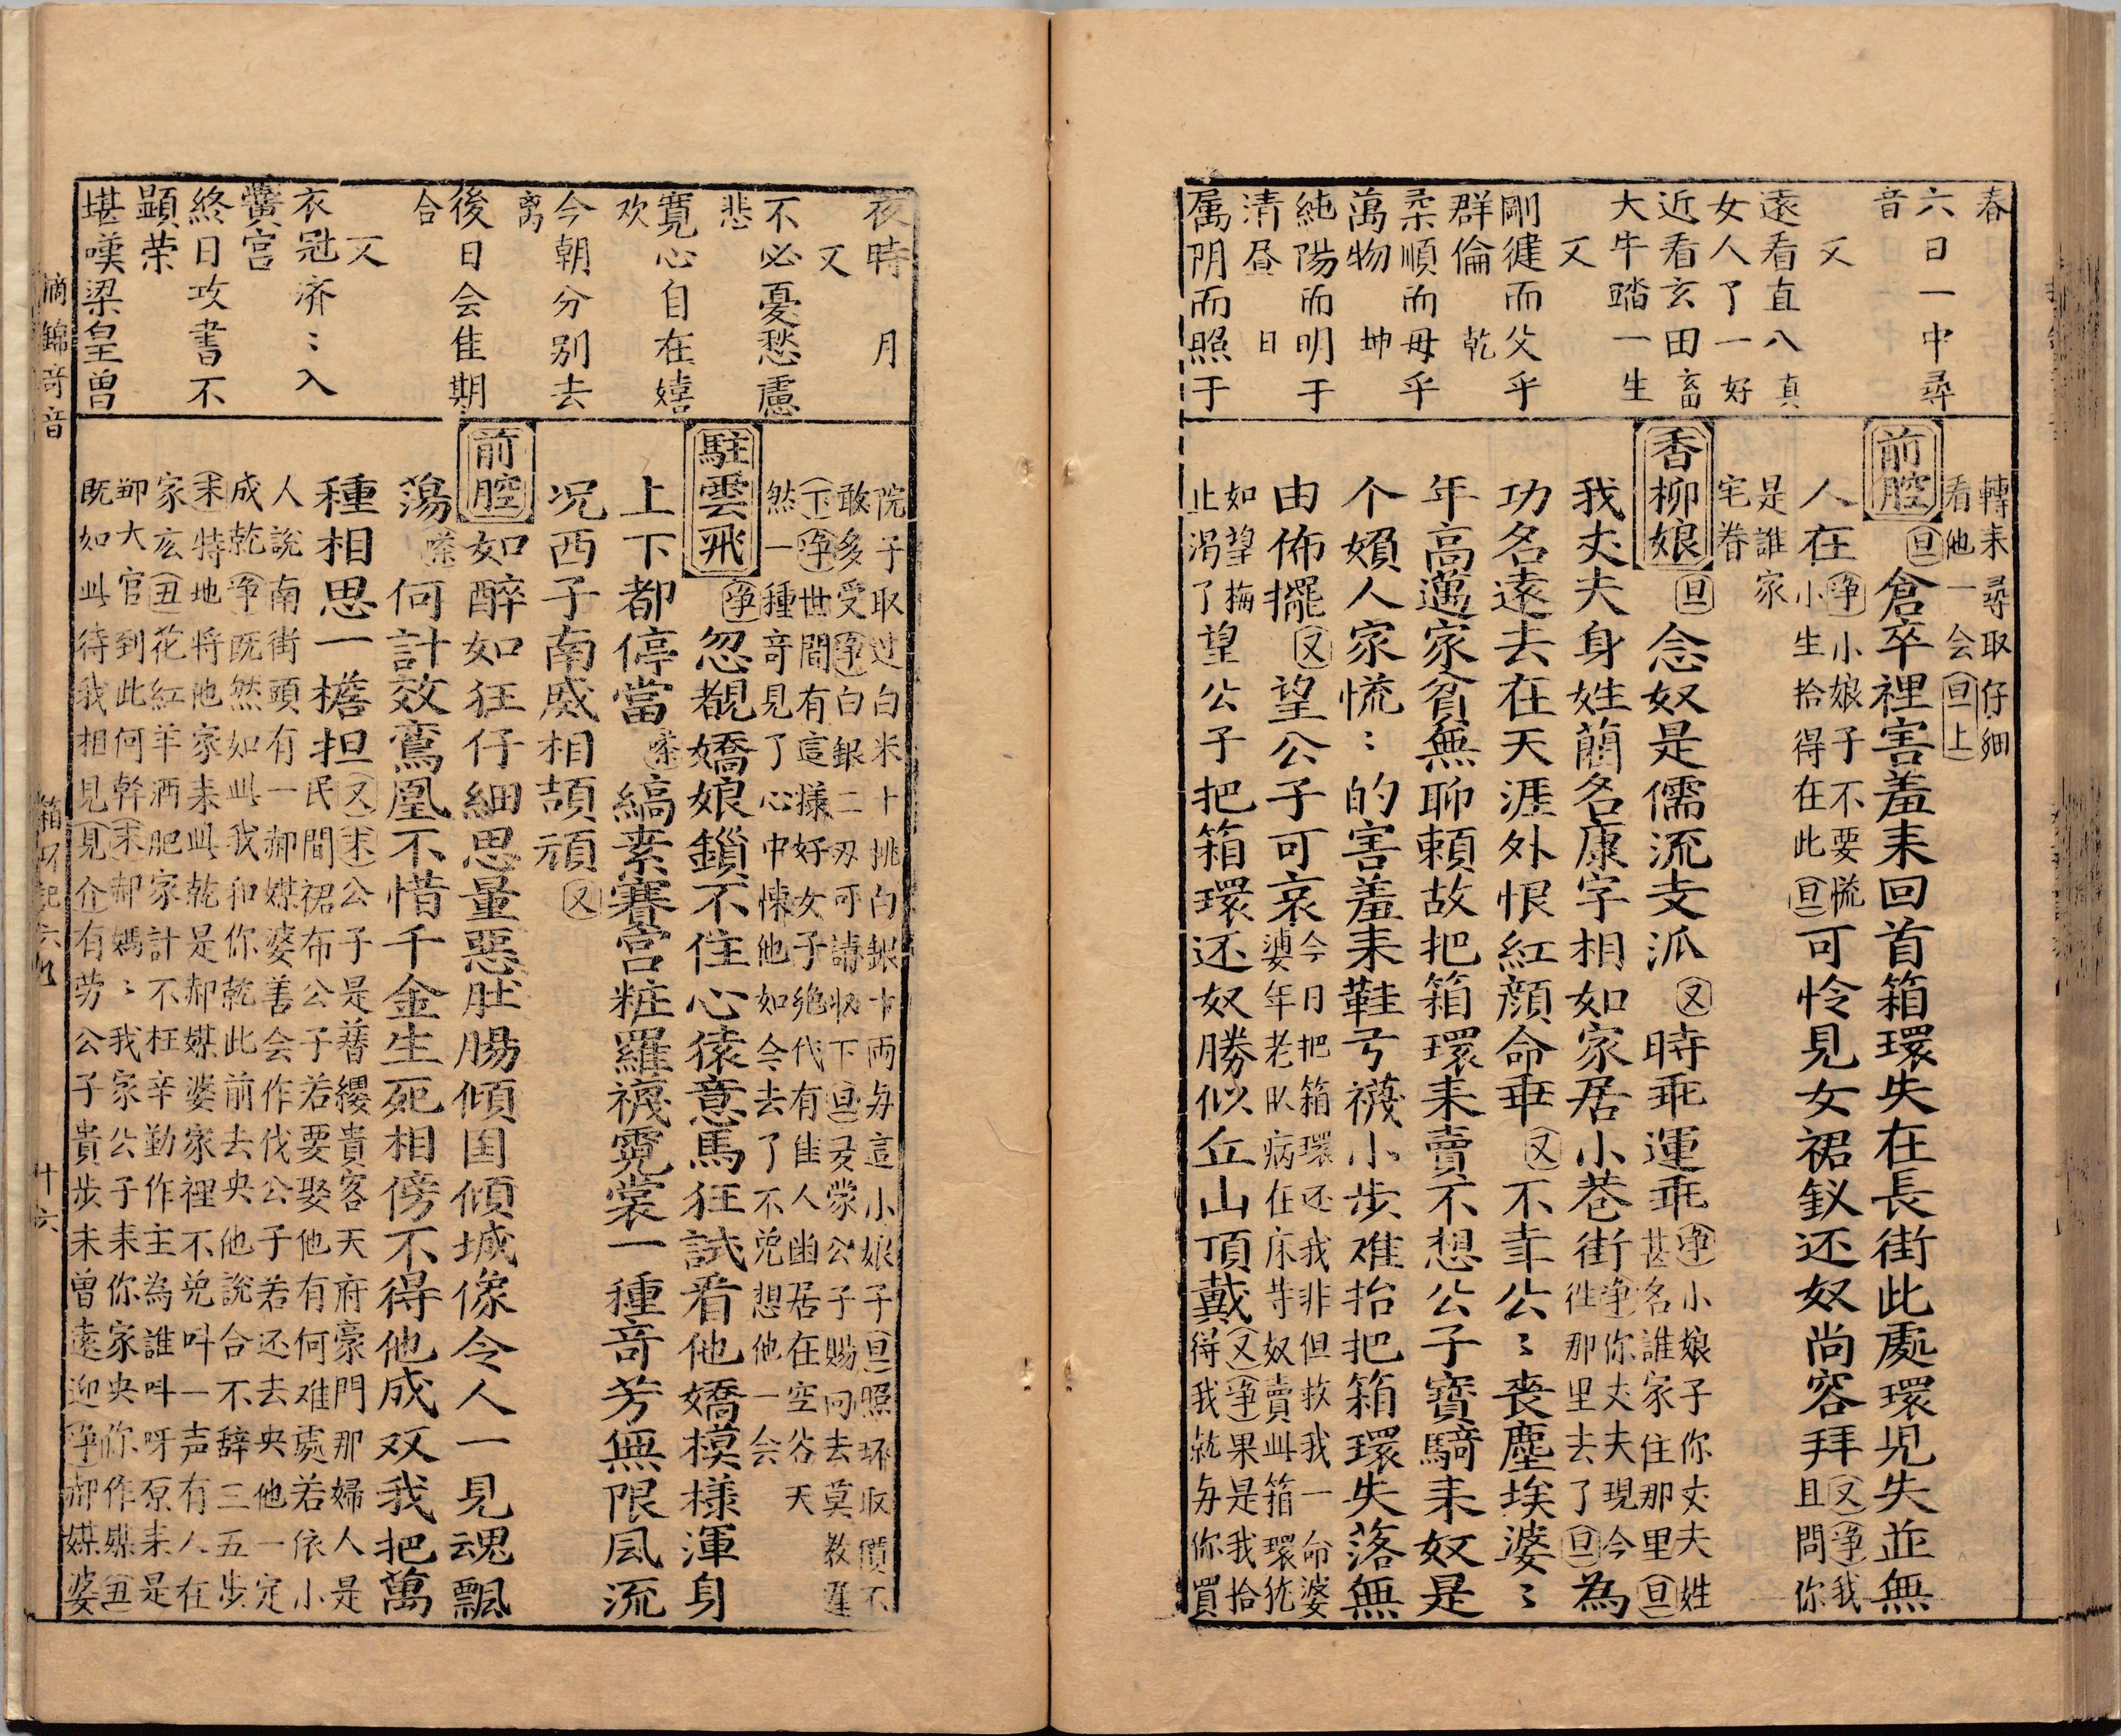 春
六日一中尋
音
又
遠看直八真
女人了一好
近看玄田畜
大牛踏一生
又
剛健而父乎
群倫 乾
柔順而母乎
萬物 坤
純陽而明于
清昼 日
属阴而照于
轉来尋取仔細
看他一会旦上
前腔
旦倉卒裡害羞来回首箱環失在長街此處環児失並無
人在
净小娘子不要慌
小生拾得在此旦
可怜見女裙釵还奴尚容拜
又净我
且問你
是誰家
宅眷
香柳娘
旦念奴是儒流支派又時乖運乖
净小娘子你丈夫姓
甚名誰家住那里旦
我丈夫身姓蔄名康字相如家居小巷街
净你丈夫現今
徃那里去了旦
為
功名遠去在天涯外恨紅顔命乖又不幸公〻喪塵埃婆〻
年高邁家貧無聊頼故把箱環来賣不想公子寳騎来奴是
个嬪人家慌〻的害羞来鞋弓襪小步难抬把箱環失落無
由佈擺又望公子可哀
今日把箱環还我非但救我一命婆
婆年老卧病在床専奴賣此箱環犹
如望梅
止渴了
望公子把箱環还奴勝似丘山頂戴
又净果是我拾
得我就与你買
夜時 月
又
不必憂愁慮
悲
寛心自在嬉
欢
今朝分别去
离
後日会佳期
合
又
衣冠济〻入
黌宫
終日攻書不
顕荣
堪嘆梁皇曽
院子取过白米十挑白銀十両与這小娘子旦照环取價不
敢多受净白銀二刄可請收下旦多蒙公子賜问去莫教
下净世間有這樣好女子绝代有佳人幽居在空谷天
然一種竒見了心中悚他如今去了不免想他一会
駐雲飛
净忽覩嬌娘鎖不住心猿意馬狂試看他嬌模樣渾身
上下都停當嗏縞素賽宫粧羅襪霓裳一種竒芳無限風流
况西子南威相頡頏又
前腔
如醉如狂仔細思量惡肚腸傾国傾城像令人一見魂飄
蕩嗏何計效鸞凰不惜千金生死相傍不得他成双我把萬
種相思一擔担
又末公子是簪纓貴客天府豪門那婦人是
民間裙布公子若要娶他有何难處若依小
人說南街頭有一郝媒婆善会作伐公子若还去央他一定
成乾净既然如此我和你乾此前去央他說合不辞三五步
末特地将他家来此乾是郝媒婆家裡不免呌一声有人在
家庅丑花紅羊酒肥家計不枉辛勤作主為誰呌呀原来是
郝大官到此何幹末郝媽〻我家公子来你家央你作媒丑
既如此待我相見見介有劳公子貴步未曽遠迎净郝媒婆
摘錦竒音
箱环記 六卷
廿六